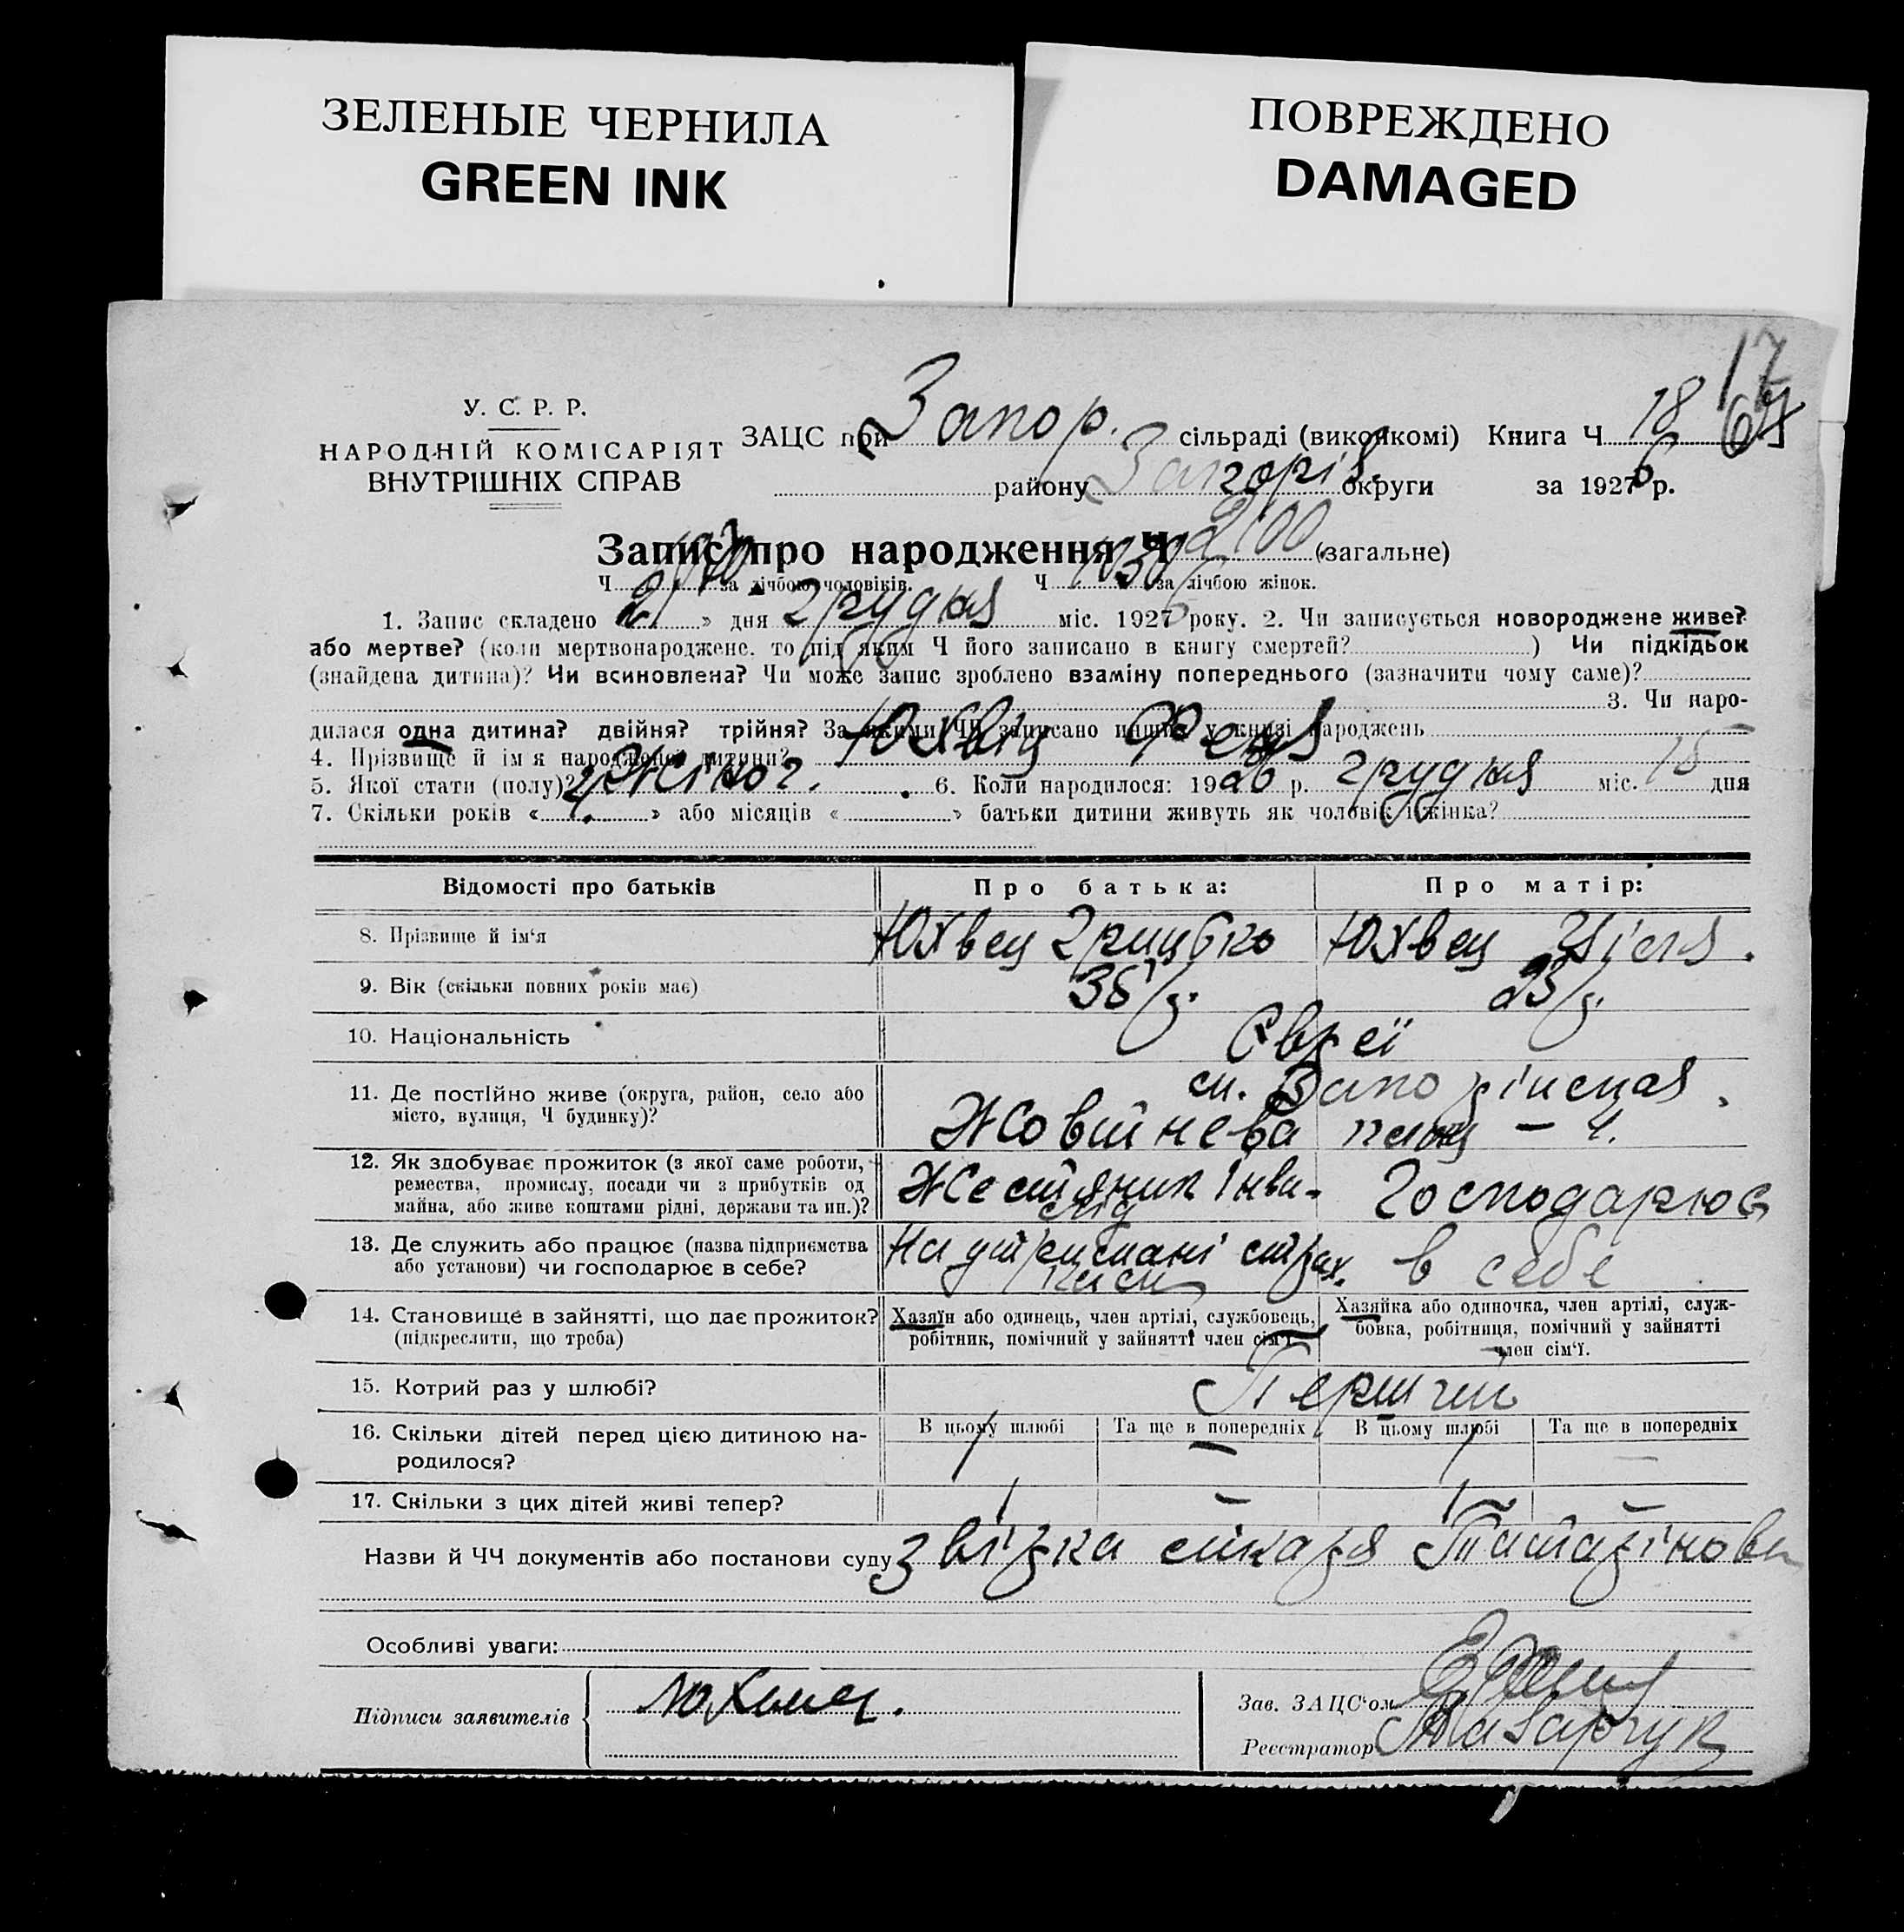 ЗЕЛЕНЫЕ ЧЕРНИЛА
GREEN INK
ПОВРЕЖДЕНО
DAMAGED
17
У. С. Р. Р.
НАРОДНІЙ КОМІСАРІЯТ
ВНУТРІШНІХ СПРАВ
ЗАЦС при Запор. сільраді (виконкомі) Книга Ч 18
району Запоріз. округи за 1926 р.
Запис про народження Ч 2100 (загальне)
Ч 1070 за лічбою чоловіків. Ч 1030 за лічбою жінок.
1. Запис складено 21 » дня грудня міс. 1926 року. 2. Чи записується новороджене живе?
або мертве? (коли мертвонароджене, то під яким Ч його записано в книгу смертей? ) Чи підкідьок
(знайдена дитина)? Чи всиновлена? Чи може запис зроблено взаміну попереднього (зазначити чому саме)?
3. Чи наро-
дилася одна дитина? двійня? трійня? За якими ЧЧ записано инших у книзі народжень —
4. Прізвище й ім'я народженої дитини? Юхвец Феня
5. Якої стати (полу)? Жіноч. 6. Коли народилося: 1926 р. грудня міс. 15 дня
7. Скільки років « 4. » або місяців « » батьки дитини живуть як чоловік і жінка?
Відомості про батьків Про батька: Про матір:
8. Прізвище й ім'я Юхвец Юхвец
9. Вік (скільки повних років має) 23/
10. Національність Євреї
11. Де постійно живе (округа, район, село або
місто, вулиця, Ч будинку)?
м. Запоріжжя,
Жовтнева площ — 4.
12. Як здобуває прожиток (з якої саме роботи,
ремества, промислу, посади чи з прибутків од
майна, або живе коштами рідні, держави та ин.)?
Жестяник інва-
лід
Господарює
13. Де служить або працює (назва підприємства
або установи) чи господарює в себе?
На утримані страх.
каси
в себе
14. Становище в зайнятті, що дає прожиток?
(підкреслити, що треба)
Хазяїн або одинець, член артілі, службовець,
робітник, помічний у зайнятті член сім'ї.
Хазяйка або одиночка, член артілі, служ-
бовка, робітниця, помічний у зайнятті
член сім'ї.
15. Котрий раз у шлюбі? Перший
16. Скільки дітей перед цією дитиною на-
родилося?
В цьому шлюбі Та ще в попередніх В цьому шлюбі Та ще в попередніх
1 — 1 —
17. Скільки з цих дітей живі тепер? 1 — 1 —
Назви й ЧЧ документів або постанови суду довірка лікаря
Особливі уваги:
Підписи заявителів
Зав. ЗАЦС'ом
Реєстратор